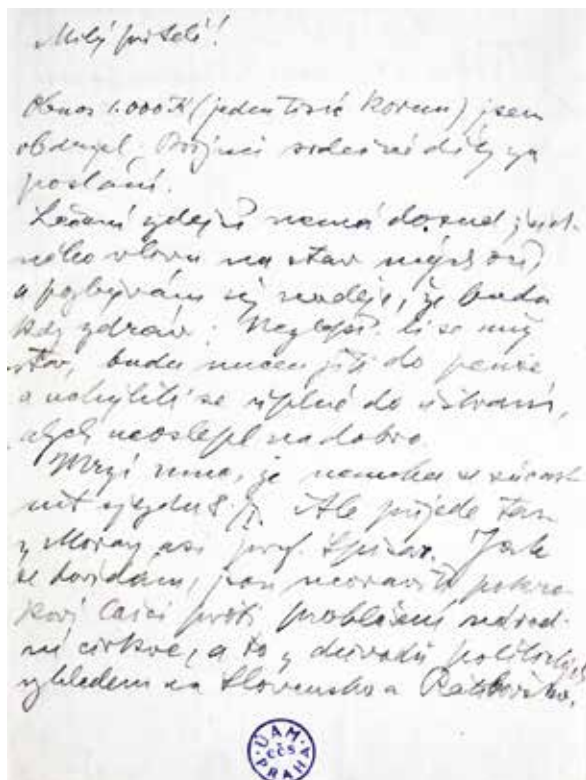 Milý příteli!
Obnos 1.000 K (jeden tisíc korun) jsem
obdržel. Přijmi srdečné díky za
poslání.
Léčení zdejší nemá dosud
vlivu na stav mých očí,
a pozbývám již naděje, že budu
kdy zdráv. Nezlepší-li se můj
stav, budu nucen jíti do pense
a uchýliti se úplně do ústraní,
abych neoslepl nadobro.
Mrzí mne, že nemohu se súčast-
nit sjezdu Ale přijede tam
z Moravy asi prof. Spisar. Jak
se dovídám, jsou moravští pokro-
koví laici proti prohlášení národ-
ní církve, a to z důvodů politických
vzhledem na Slovensko a
ÚAM
CČS
PRAHA